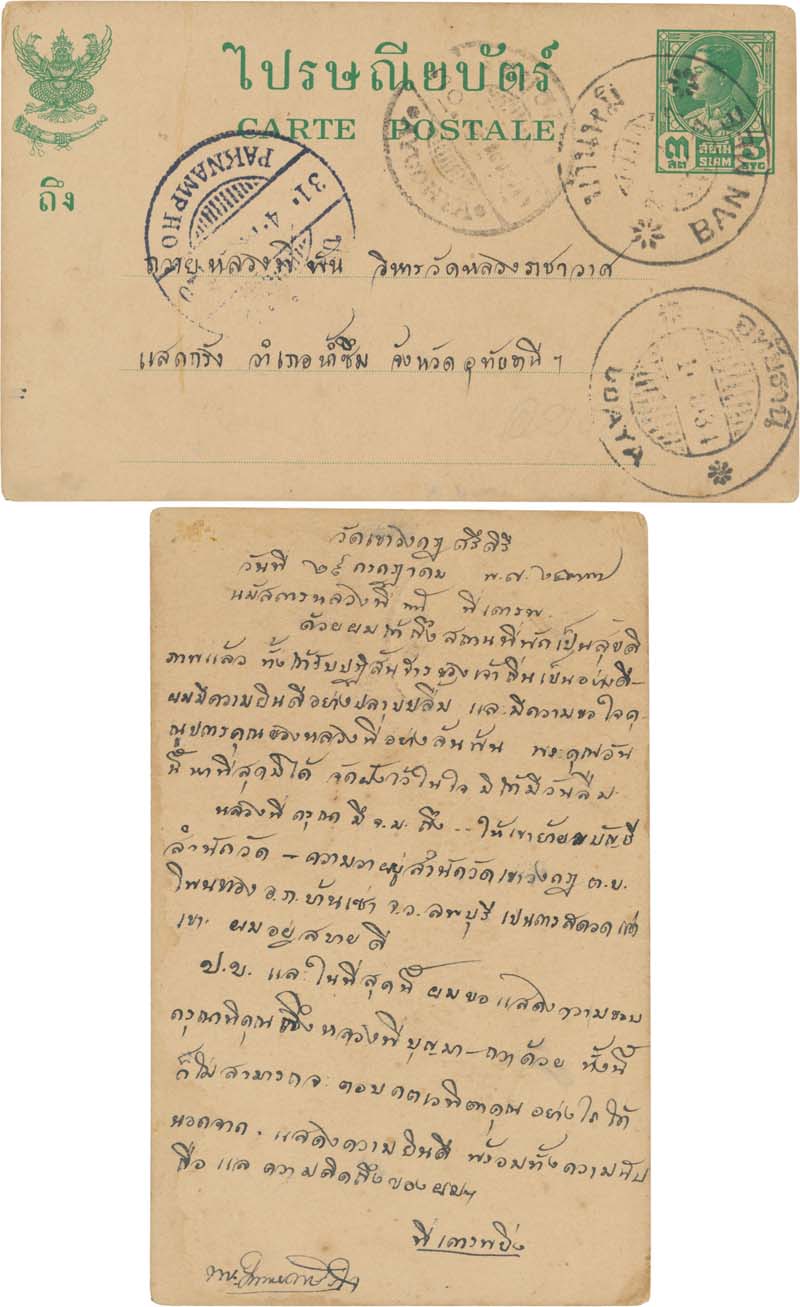 ไปรษณียบัตร์
CARTE POSTALE
๓ สยาม 3
สต. SIAM STG
ถึง
PAKNAMPHO
31. 4.
บ้านหมี่
BAN
อุทัยธานี
UDAYA
ถวายหลวงพี่ พัน วิหารวัดหลวงราชาวาศ
แสดกรัง อำเภอน้ำซึม จังหวัดอุทัยธานี ฯ
วัดเขาวงกฎ คีรีศิริ
วันที่ ๒๙ กรกฎาคม พ.ศ.
นมัสการหลวงพี่ ที่เคารพ.
ด้วยผมได้ถึงสถานที่พักเป็นสุขสดิ
ภาพแล้ว ทั้งได้รับปฏิสันฐารของเจ้าถิ่นเป็นอย่างดี–
ผมมีความยินดีอย่างปลาบปลื้ม และมีความขอใจคุ–
ณูปการคุณของหลวงพี่อย่างล้นพ้น พระคุณอัน
นี้หาที่สุดมิได้ จัดฝังไว้ในใจ มิได้มีวันลืม.
หลวงพี่ กรุณา มี จ.ม. ถึง -- ให้เขาย้ายบัญชี
สำนักวัด – ความว่าอยู่สำนักวัดเขาวงกฎ ต.บ.
โพนทอง อ.ภ. บ้านเซ่า จ.ว. ลพบุรี เปนการสดวดแก่
เขา. ผมอยู่สบายดี
ป.ข. แล ในที่สุดนี้ ผมขอแสดงความขอบ
กรุณาธิคุณถึงหลวงพี่บุญมา–กาด้วย ทั้งนี้
ก็ไม่สามารถจะตอบกตเวทิตาคุณอย่างใดได้
นอกจาก. แสดงความยินดี พร้อมทั้งความนับ
ถือ แล ความคิดถึงของผมฯ
ที่เคารพยิ่ง